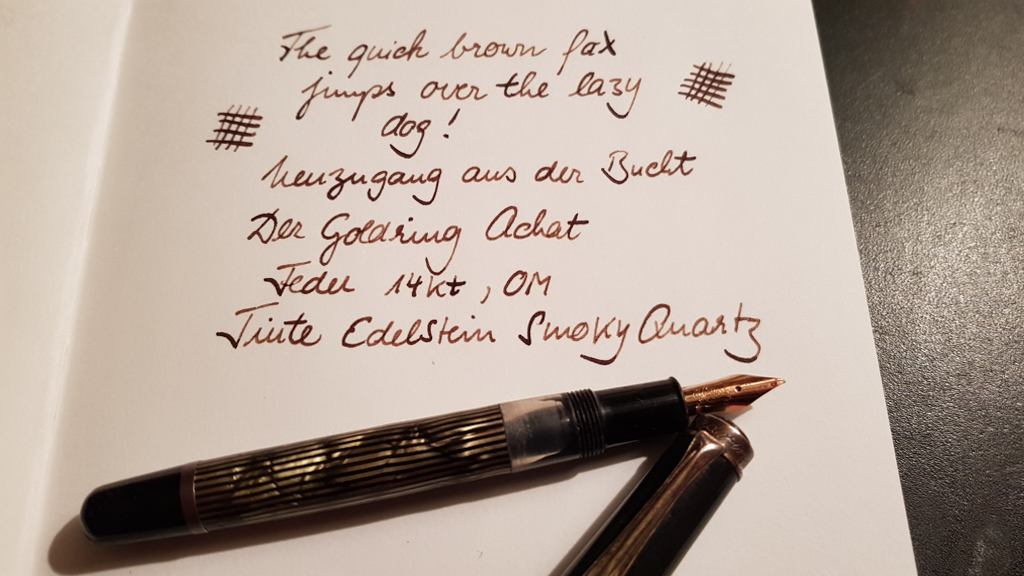 The quick brown fox
jumps over the lazy
dog!
Neuzugang aus der Bucht
Der Goldring Achat
Feder 14kt, OM
Tinte Edelstein Smoky Quartz